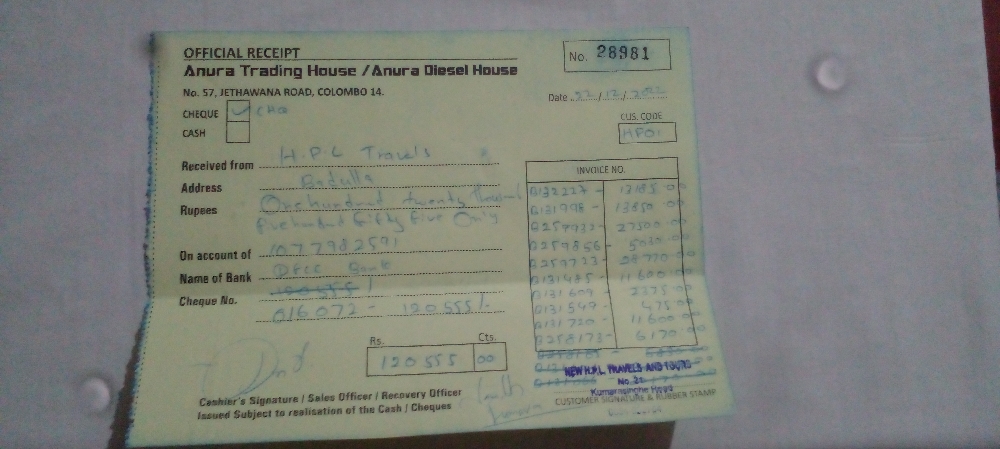 OFFICIAL RECEIPT
No. 28981
Anura Trading House / Anura Diesel House
No. 57, JETHAWANA ROAD, COLOMBO 14.
Date 22/12/2022
CHEQUE CHQ
CASH
CUS. CODE
HP01
Received from H.P.L Travels
Address Badulla
Rupees One hundred twenty thousand
five hundred fifty five Only
On account of 1077982591
Name of Bank DFCC Bank
Cheque No. 120555/
016072 - 120555/-
INVOICE NO.
0132227 - 13185.00
0131998 - 13850.00
0257932 - 27500.00
0257856 -
0131485 - 11600.00
0131609 - 2275.00
0131549 - 475.00
0131720 - 11600.00
0258173 - 6170.00
Rs. Cts.
120555 00
Cashier's Signature / Sales Officer / Recovery Officer
Issued Subject to realisation of the Cash / Cheques
NEW H.P.L. TRAVELS AND TOURS
No. 2
Kumarasinghe Road
CUSTOMER SIGNATURE & RUBBER STAMP